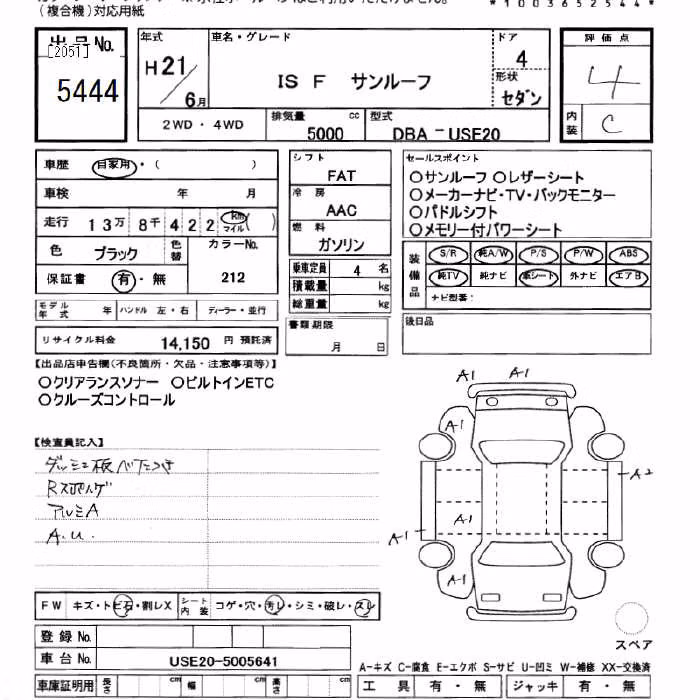 (複合機)対応用紙
*1003652544*
出品No.
[2051]
5444
年式
H21/6月
車名・グレード
IS F サンルーフ
ドア
4
形状
セダン
評価点
4
内装
C
2WD・4WD
排気量
5000 cc
型式
DBA－USE20
車歴 自家用・( )
車検 年 月
走行 13万 8千 422 Km マイル ( )
色 ブラック 色替
カラーNo.
212
保証書 有・無
モデル年式 年 ハンドル 左・右 ディーラー・並行
リサイクル料金 14,150 円 預託済
シフト
FAT
冷房
AAC
燃料
ガソリン
乗車定員 4 名
積載量 kg
総重量 kg
書類期限
月 日
セールスポイント
○サンルーフ ○レザーシート
○メーカーナビ・TV・バックモニター
○パドルシフト
○メモリー付パワーシート
装備品
S/R 純A/W P/S P/W ABS
純TV 純ナビ 革シート 外ナビ エアB
ナビ型番:
後日品
【出品店申告欄(不良箇所・欠品・注意事項等)】
○クリアランスソナー ○ビルトインETC
○クルーズコントロール
【検査員記入】
ダッシュ板ベタつき
アルミA
A.U.
A1 A1
A1
A2
A1
A1
A1
FW キズ・トビ石・割レX シート内装 コゲ・穴・汚レ・シミ・破レ・スレ
スペア
登録No.
車台No. USE20-5005641
A－キズ C－腐食 E－エクボ S－サビ U－凹ミ W－補修 XX－交換済
車庫証明用 長さ cm 幅 cm 高さ cm
工具 有・無 ジャッキ 有・無